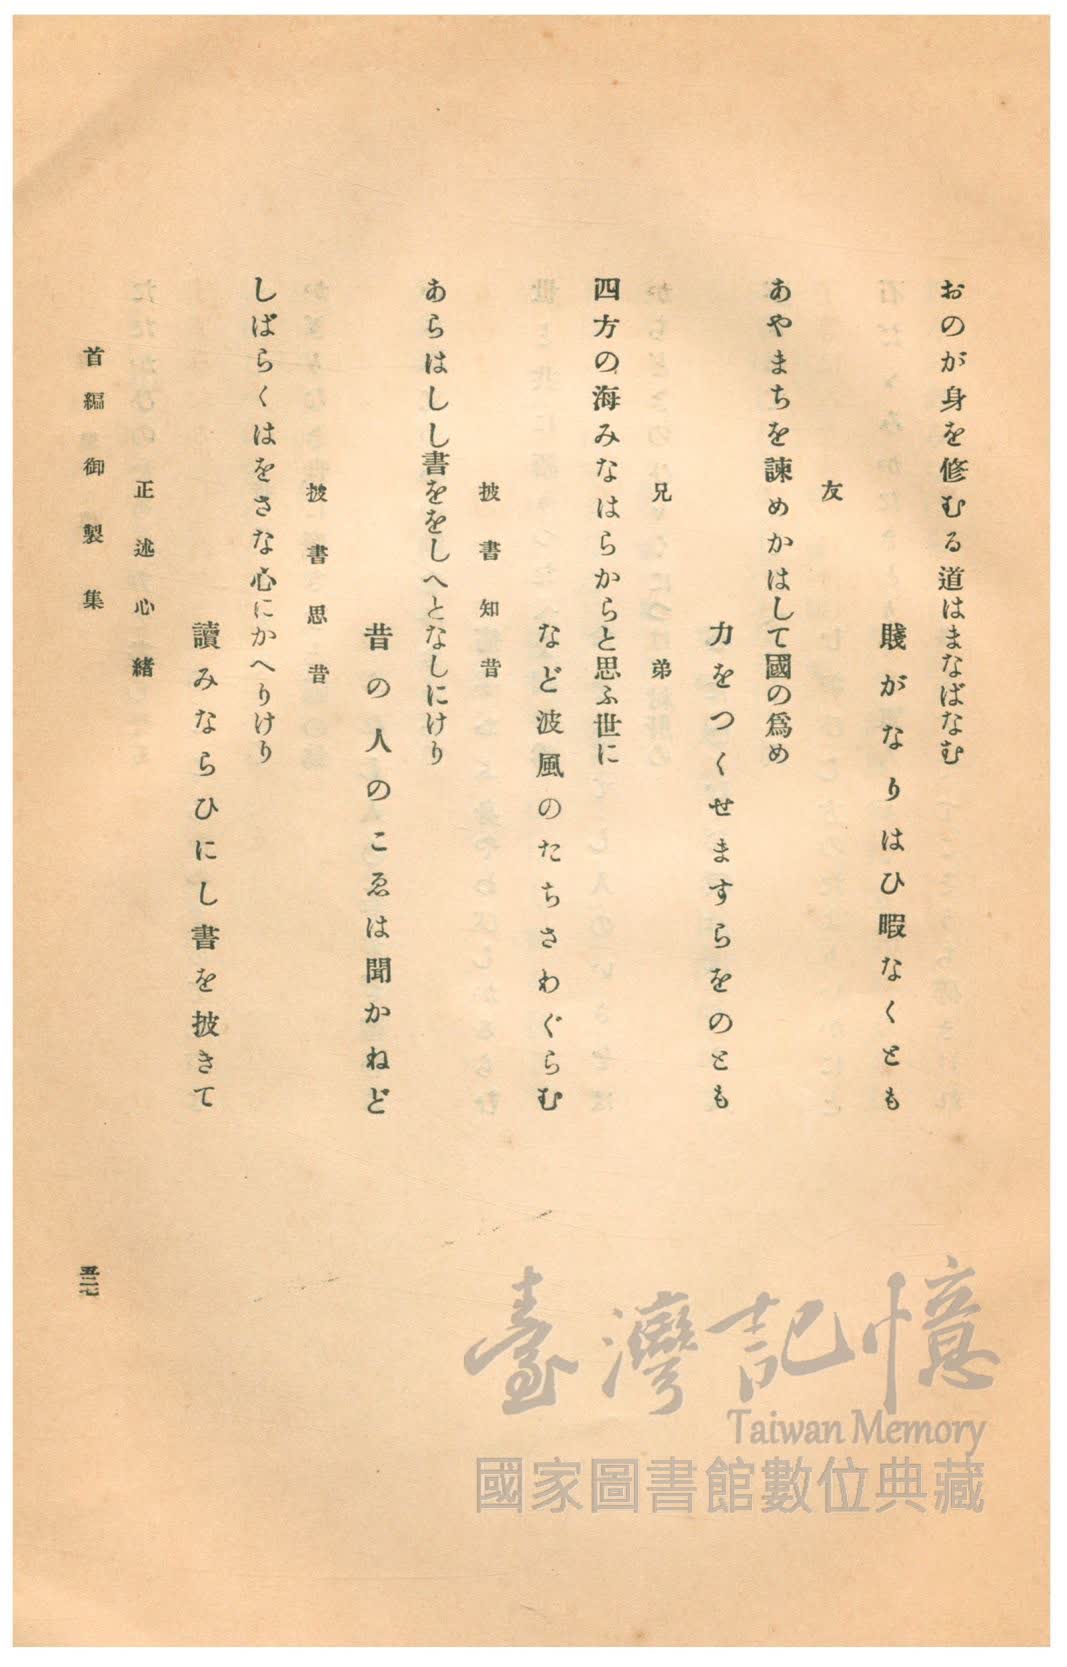 おのが身を修むる道はまなばなむ
賤がなりはひ暇なくとも
友
あやまちを諫めかはして國の爲め
力をつくせますらをのとも
兄弟
四方の海みなはらからと思ふ世に
など波風のたちさわぐらむ
披書知昔
あらはしし書ををしへとなしにけり
昔の人のこゑは聞かねど
披書思昔
しばらくはをさな心にかへりけり
讀みならひにし書を披きて
正述心緒
首編 御製集
五二七
臺灣記憶
Taiwan Memory
國家圖書館數位典藏